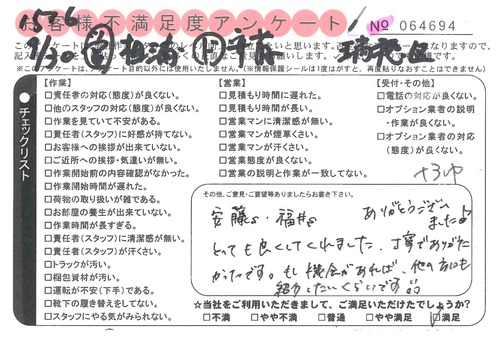 お客様不満足度アンケート
No 064694
1586
7/30
※このアンケートは、アンケート目的以外には使用いたしません。(※情報保護シールは1度はがすと、再度貼りなおすことはできません)
チェックリスト
【作業】
□責任者の対応(態度)が良くない。
□他のスタッフの対応(態度)が良くない。
□作業を見ていて不安がある。
□責任者(スタッフ)に好感が持てない。
□お客様への挨拶が出来ていない。
□ご近所への挨拶・気遣いが無い。
□作業開始前の内容確認がなかった。
□作業開始時間が遅れた。
□荷物の取り扱いが雑である。
□お部屋の養生が出来ていない。
□作業時間が長すぎる。
□責任者(スタッフ)に清潔感が無い。
□責任者(スタッフ)が汗くさい。
□トラックが汚い。
□梱包資材が汚い。
□運転が不安(下手)である。
□靴下の履き替えをしてない。
□スタッフにやる気がみられない。
【営業】
□見積もり時間に遅れた。
□見積もり時間が長い。
□営業マンに清潔感が無い。
□営業マンが煙草くさい。
□営業マンが汗くさい。
□営業態度が良くない。
□営業の説明と作業が一致してない。
【受付・その他】
□電話の対応が良くない。
□オプション業者の説明・作業が良くない。
□オプション業者の対応(態度)が良くない。
その他、ご意見・ご要望等ありましたらお書き下さい。
安藤s・福井s ありがとうございました♪
とても良くしてくれました。丁寧でありがたかったです。もし機会があれば、他の方にも
紹介したいくらいです
☆当社をご利用いただきまして、ご満足いただけたでしょうか?
□不満 □やや不満 □普通 □やや満足 ☑満足